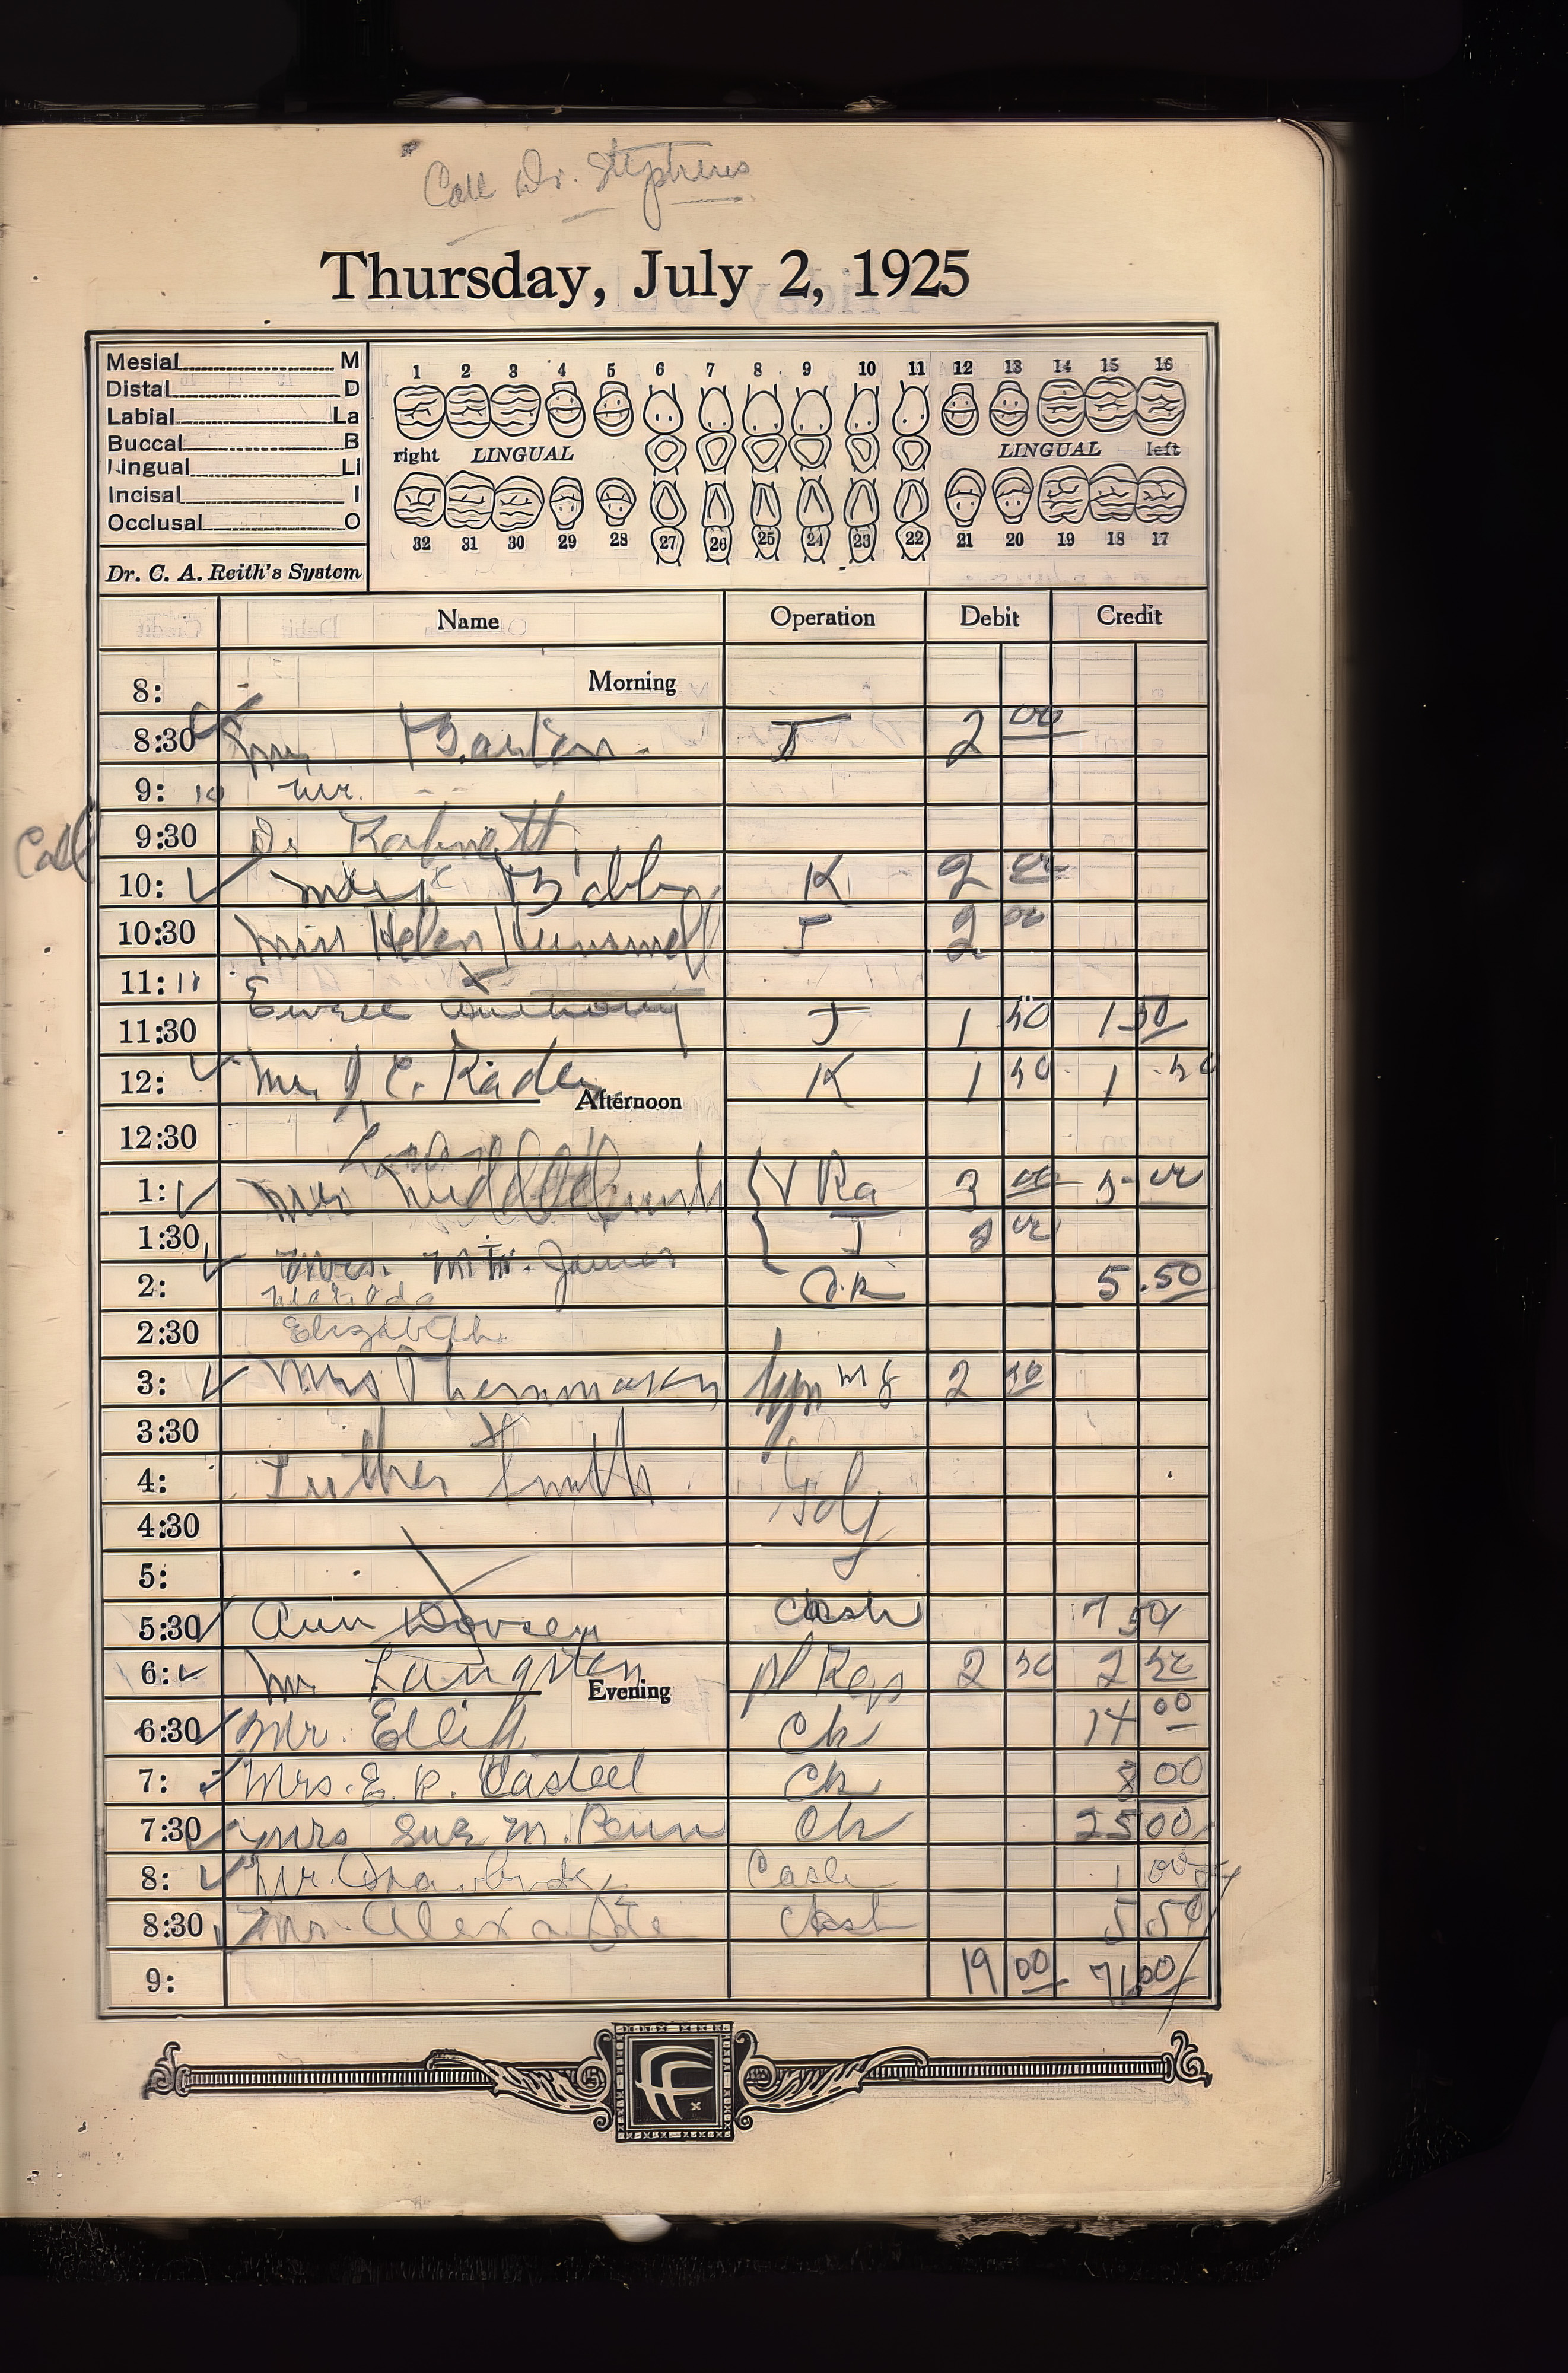 Call Dr. Stephens
Thursday, July 2, 1925
Mesial M
Distal D
Labial La
Buccal B
Lingual Li
Incisal I
Occlusal O
Dr. C. A. Reith's System
1 2 3 4 5 6 7 8 9 10 11 12 13 14 15 16
right LINGUAL LINGUAL left
32 31 30 29 28 27 26 25 24 23 22 21 20 19 18 17
Name Operation Debit Credit
8: Morning
8:30 2 00
9: 10 Mr.
9:30 Dr
Call
10: K 2 00
10:30 Miss Helen 2 00
11: 11
11:30 Anthony J 1 50 1 50
12: Mr J. C. Rader K 1 50 1 50
Afternoon
12:30
1: Mrs Ra 3 00 5 00
1:30 J 2 00
Mrs. M. W. James
2: O.K 5.50
Matilda
2:30 Elizabeth
3: Mrs 2 50
3:30
4: Luther Smith
4:30
5:
5:30 Ann Dorsey Cash 7 50
6: Mr Langston pl Rep 2 50 2 50
Evening
6:30 Mr. Elliff Ck 14 00
7: Mrs. E. R. Casteel Ck 8 00
7:30 Mrs Sue M. Penn Ck 25 00
8: Mr. Cash 1 00
8:30 Cash 5 50
9: 19 00 71.00